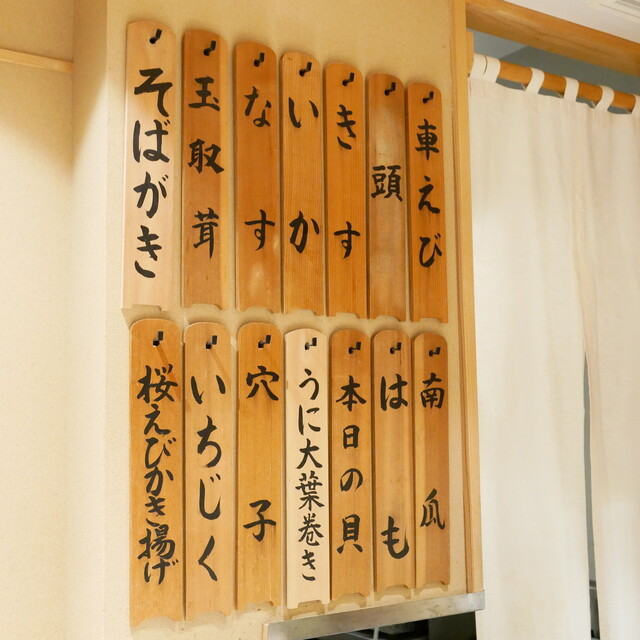 車えび
頭
きす
いか
なす
玉取茸
そばがき
南瓜
はも
本日の貝
うに大葉巻き
穴子
いちじく
桜えびかき揚げ